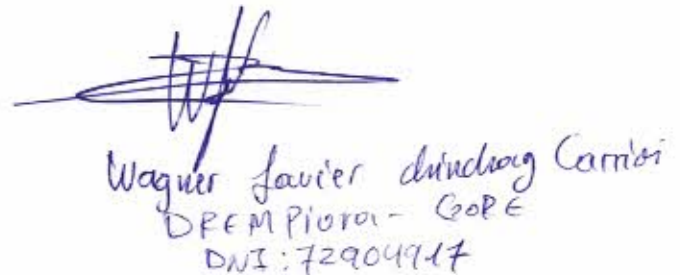 Wagner Javier chinchay Carrion
DREM Piura - GORE
DNI: 72904917